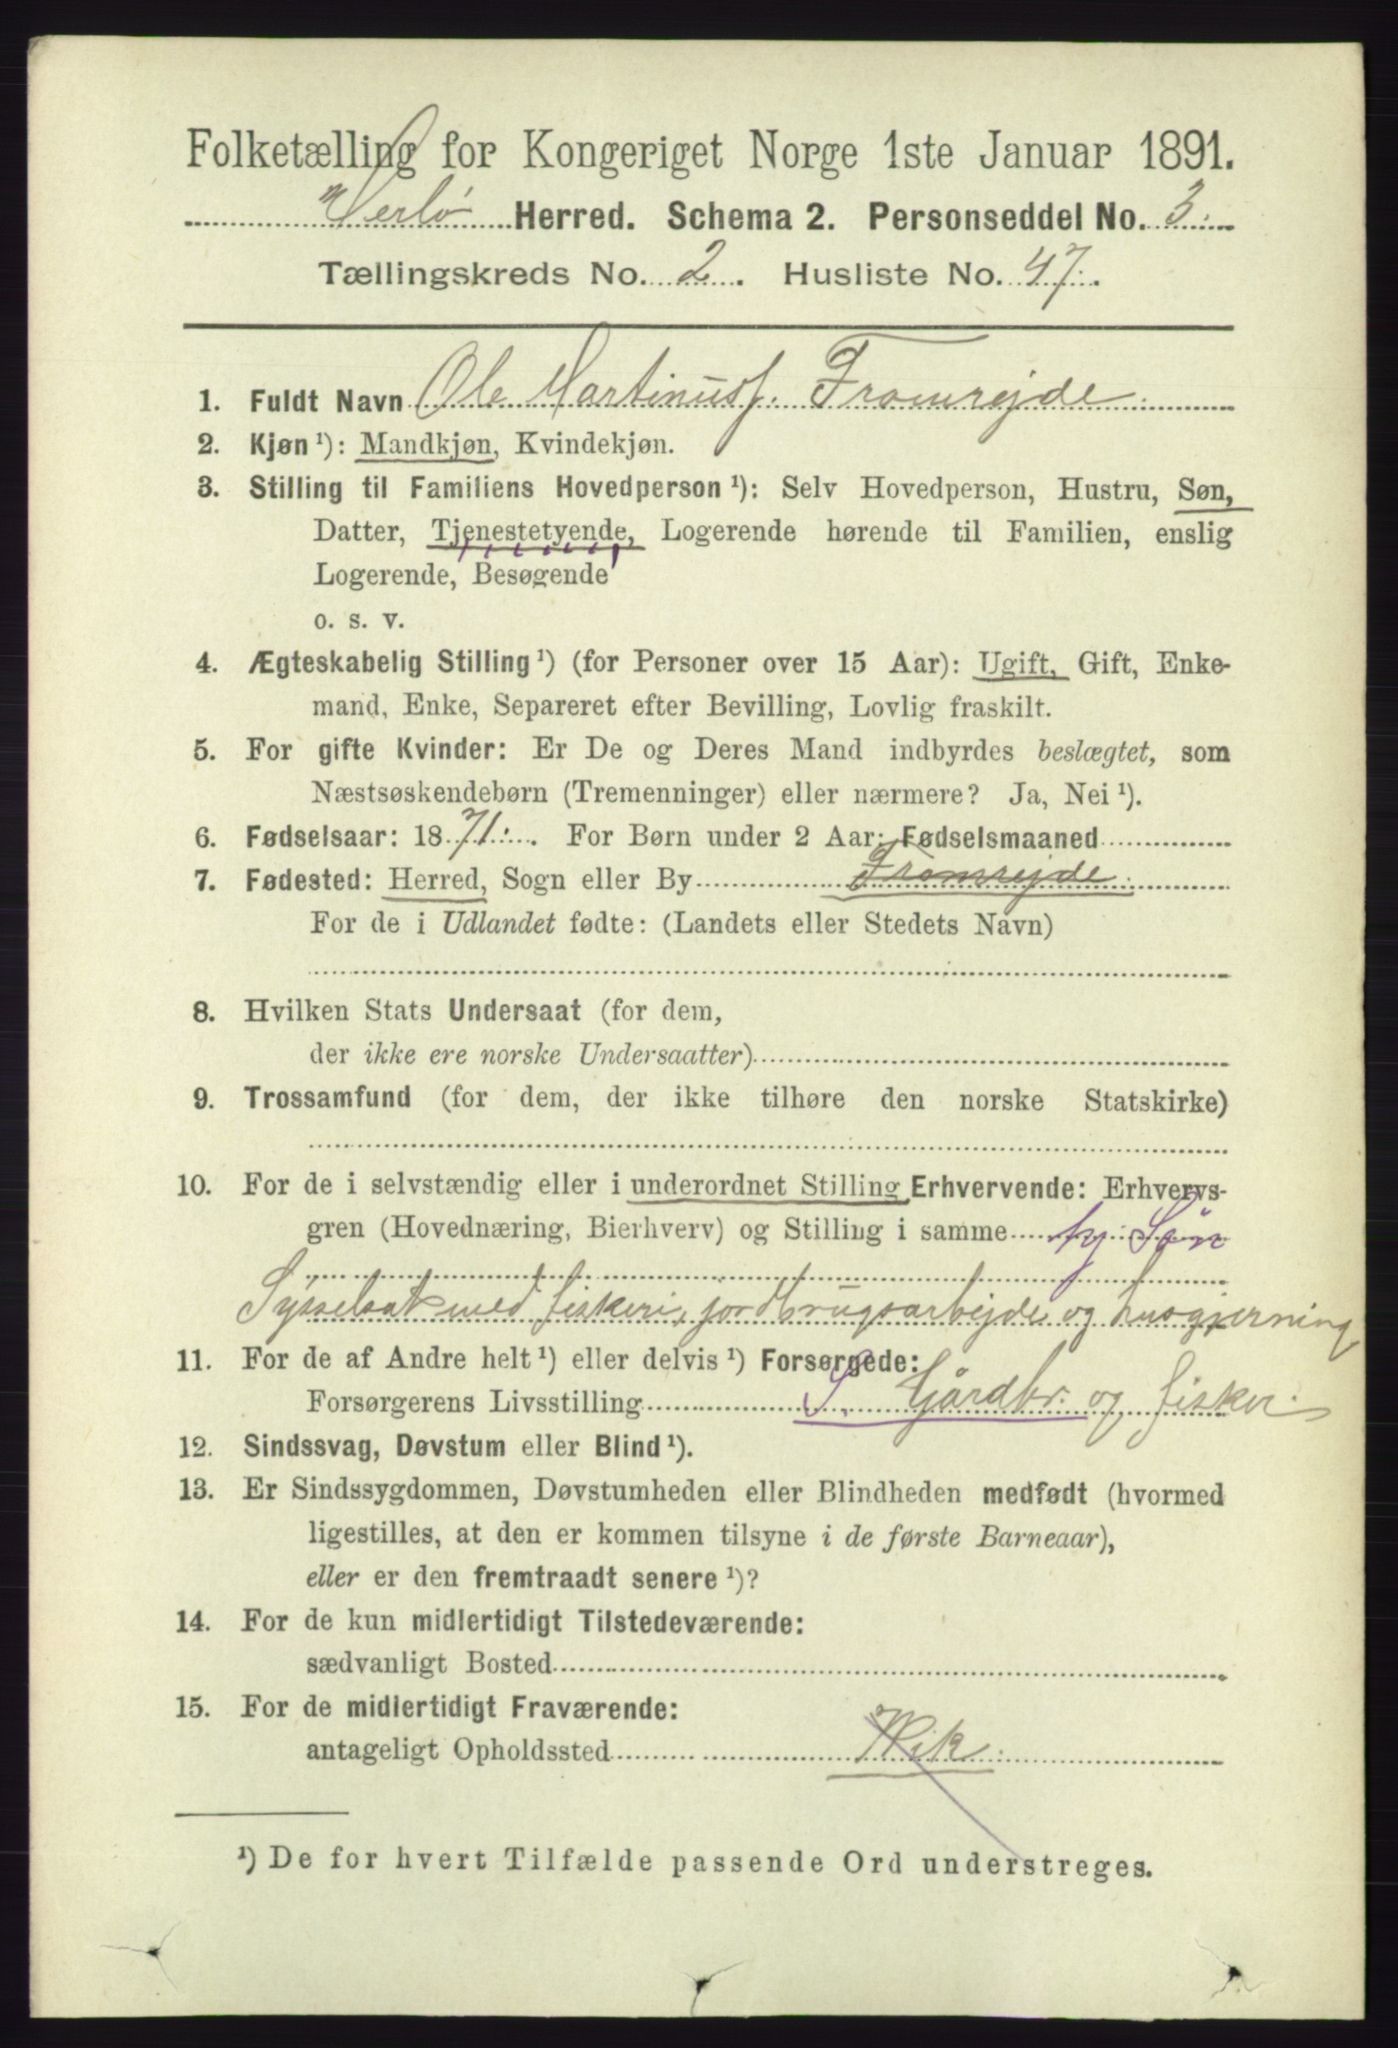 Folketælling for Kongeriget Norge 1ste Januar 1891.
Herlø Herred. Schema 2. Personseddel No. 3.
Tællingskreds No. 2. Husliste No. 47.
1. Fuldt Navn Ole Martinus J. Fromrejde.
2. Kjøn ¹): Mandkjøn, Kvindekjøn.
3. Stilling til Familiens Hovedperson ¹): Selv Hovedperson, Hustru, Søn,
Datter, Tjenestetyende, Logerende hørende til Familien, enslig
Logerende, Besøgende
o. s. v.
4. Ægteskabelig Stilling ¹) (for Personer over 15 Aar): Ugift, Gift, Enke-
mand, Enke, Separeret efter Bevilling, Lovlig fraskilt.
5. For gifte Kvinder: Er De og Deres Mand indbyrdes beslægtet, som
Næstsøskendebørn (Tremenninger) eller nærmere? Ja, Nei ¹).
6. Fødselsaar: 1871. For Børn under 2 Aar: Fødselsmaaned
7. Fødested: Herred, Sogn eller By Fromrejde.
For de i Udlandet fødte: (Landets eller Stedets Navn)
8. Hvilken Stats Undersaat (for dem,
der ikke ere norske Undersaatter)
9. Trossamfund (for dem, der ikke tilhøre den norske Statskirke)
10. For de i selvstændig eller i underordnet Stilling Erhvervende: Erhvervs-
gren (Hovednæring, Bierhverv) og Stilling i samme hj. Søn
Sysselsat med fiskeri, jordbrugsarbejde og husgjerning
11. For de af Andre helt ¹) eller delvis ¹) Forsørgede:
Forsørgerens Livsstilling S. Gårdbr. og fisker.
12. Sindssvag, Døvstum eller Blind ¹).
13. Er Sindssygdommen, Døvstumheden eller Blindheden medfødt (hvormed
ligestilles, at den er kommen tilsyne i de første Barneaar),
eller er den fremtraadt senere ¹)?
14. For de kun midlertidigt Tilstedeværende:
sædvanligt Bosted
15. For de midlertidigt Fraværende:
antageligt Opholdssted Wik.
¹) De for hvert Tilfælde passende Ord understreges.